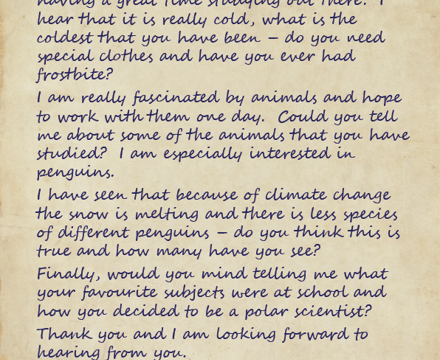 having a great time studying out there? I
hear that it is really cold, what is the
coldest that you have been – do you need
special clothes and have you ever had
frostbite?
I am really fascinated by animals and hope
to work with them one day. Could you tell
me about some of the animals that you have
studied? I am especially interested in
penguins.
I have seen that because of climate change
the snow is melting and there is less species
of different penguins – do you think this is
true and how many have you see?
Finally, would you mind telling me what
your favourite subjects were at school and
how you decided to be a polar scientist?
Thank you and I am looking forward to
hearing from you.